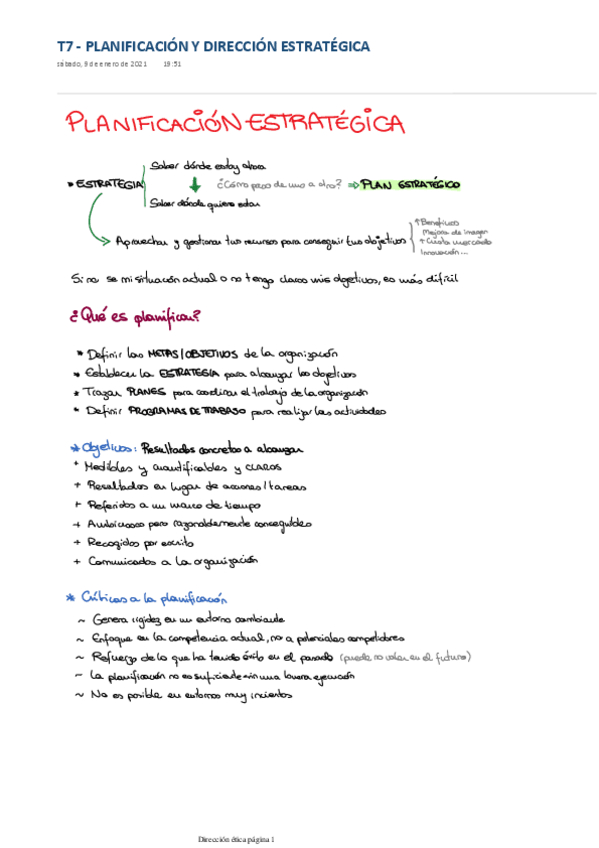 T7 - PLANIFICACIÓN Y DIRECCIÓN ESTRATÉGICA
sábado, 9 de enero de 2021 19:51
PLANIFICACIÓN ESTRATÉGICA
Saber dónde estoy ahora
* ESTRATEGIA ¿Cómo paso de uno a otro? ⇒ PLAN ESTRATÉGICO
Saber dónde quiero estar
Aprovechar y gestionar tus recursos para conseguir tus objetivos
↑ Beneficios
Mejora de imagen
+ Cuota mercado
Innovación...
Si no se mi situación actual o no tengo claros mis objetivos, es más difícil
¿Qué es planificar?
* Definir las METAS/OBJETIVOS de la organización
* Establecer la ESTRATEGIA para alcanzar los objetivos
* Trazar PLANES para coordinar el trabajo de la organización
* Definir PROGRAMAS DE TRABAJO para realizar las actividades
* Objetivos: Resultados concretos a alcanzar
+ Medibles y cuantificables y CLAROS
+ Resultados en lugar de acciones/tareas
+ Referidos a un marco de tiempo
+ Ambiciosos pero razonablemente conseguibles
+ Recogidos por escrito
+ Comunicados a la organización
* Críticas a la planificación
~ Genera rigidez en un entorno cambiante
~ Enfoque en la competencia actual, no a potenciales competidores
~ Refuerzo de lo que ha tenido éxito en el pasado (puede no valer en el futuro)
~ La planificación no es suficiente sin una buena ejecución
~ No es posible en entornos muy inciertos
Dirección ética página 1